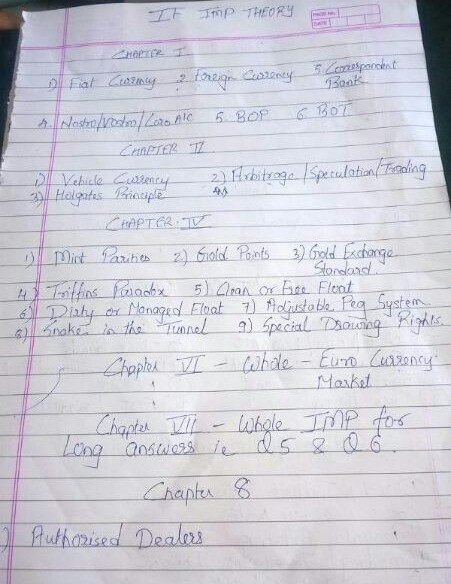 IF IMP THEORY
PAGE No.
DATE
CHAPTER I
1) Fiat Currency 2. Foreign Currency 3. Correspondent
Bank
4. Nostro/Vostro/Loro A/C 5. BOP 6. BOT
CHAPTER II
1) Vehicle Currency 2) Arbitrage/Speculation/Trading
3) Holgates Principle
CHAPTER-IV
1) Mint Parities 2) Gold Points 3) Gold Exchange
Standard.
4) Triffins Paradox 5) Clean or Free Float
6) Dirty or Managed Float 7) Adjustable Peg System
8) Snake in the Tunnel 9) Special Drawing Rights.
Chapter VI - Whole - Euro Currency
Market
Chapter VII - Whole IMP for
Long answers ie Q5 & Q6.
Chapter 8
) Authorised Dealers